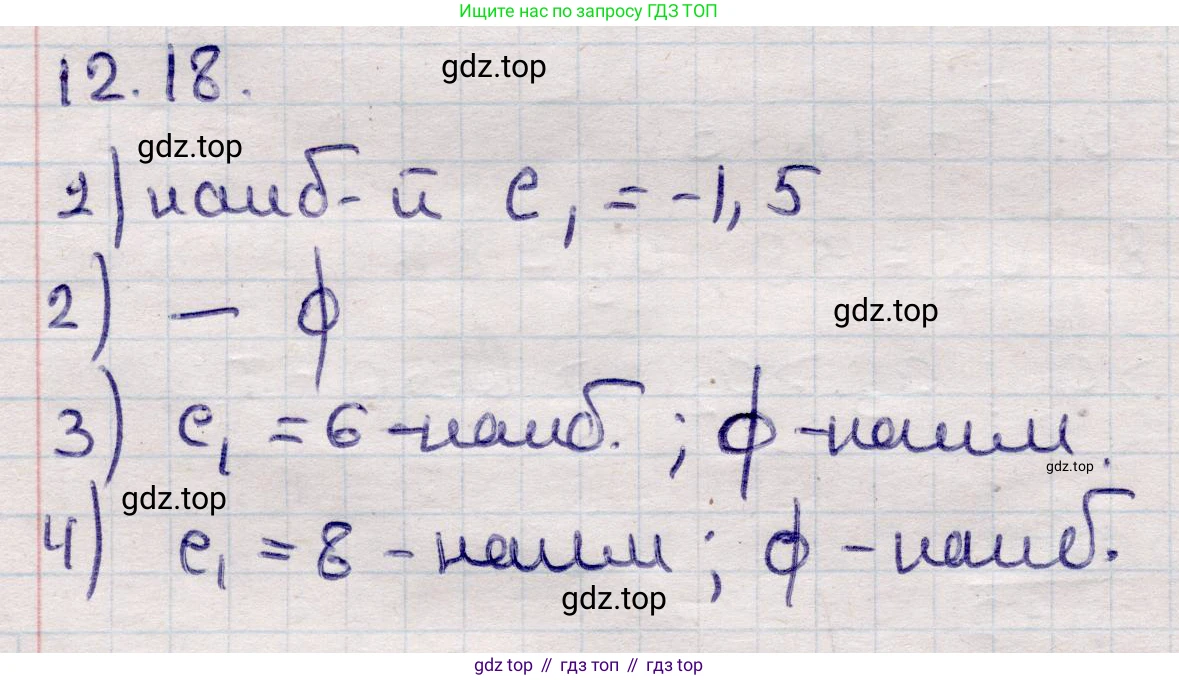 Ищите нас по запросу ГДЗ ТОП
12.18.
gdz.top
gdz.top
1) наиб-й c₁ = -1,5
2) — ϕ
gdz.top
3) c₁ = 6 - наиб. ; ϕ - наим.
gdz.top
gdz.top
4) c₁ = 8 - наим ; ϕ - наиб.
gdz.top
gdz top // гдз топ // гдз top